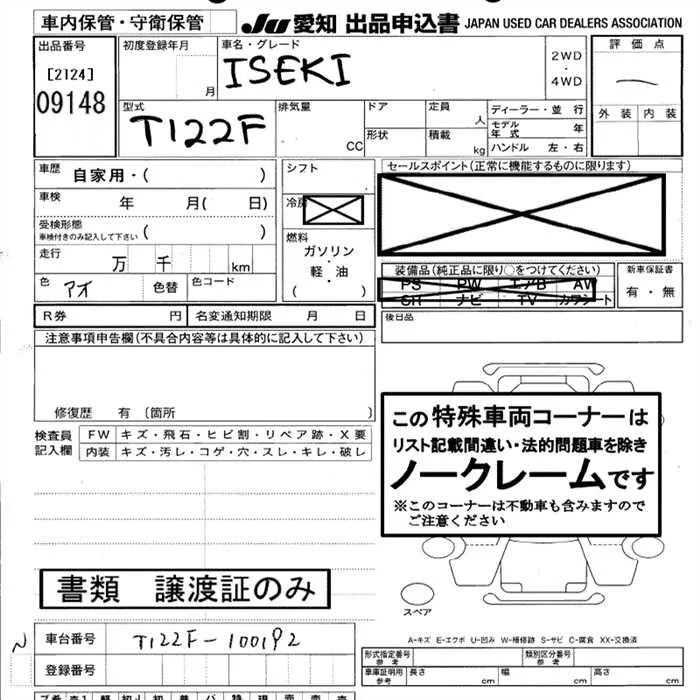 車内保管・守衛保管
JU 愛知 出品申込書 JAPAN USED CAR DEALERS ASSOCIATION
出品番号
[2124]
09148
初度登録年月
月
車名・グレード
ISEKI
2WD
・
4WD
評価点
外装 内装
型式
T122F
排気量
CC
ドア
形状
定員
人
積載
kg
ディーラー・並行
モデル年式 年
ハンドル 左・右
車歴
自家用・( )
車検 年 月( 日)
受検形態
車検付きのみ記入して下さい ( )
走行 万 千 km
色 アイ 色替 色コード
シフト
冷房
燃料
ガソリン
・
軽・油
( )
セールスポイント(正常に機能するものに限ります)
装備品(純品正に限り○をつけてください)
PS PW エアB AW
SR ナビ TV カワシート
新車保証書
有・無
R券 円 名変通知期限 月 日
後日品
注意事項申告欄(不具合内容等は具体的に記入して下さい)
修復歴 有 〔箇所 〕
検査員
記入欄
FW キズ・飛石・ヒビ割・リペア跡・X要
内装 キズ・汚レ・コゲ・穴・スレ・キレ・破レ
この特殊車両コーナーは
リスト記載間違い・法的問題車を除き
ノークレームです
※このコーナーは不動車も含みますので
ご注意ください
書類 譲渡証のみ
スペア
A-キズ E-エクボ U-凹み W-補修跡 S-サビ C-腐食 XX-交換済
車台番号 T122F-100192
登録番号
形式指定番号
参考
類別区分番号
参考
車庫証明用
参考
長さ cm 幅 cm 高さ cm